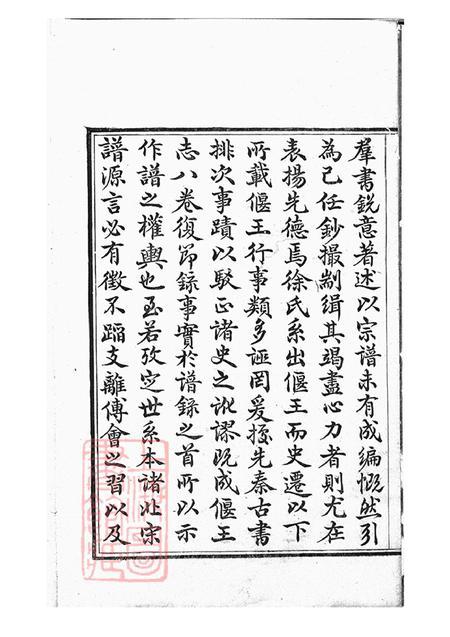 羣書銳意著述以宗譜未有成編慨然引
為己任鈔撮剬緝其竭盡心力者則尤在
表揚先德焉徐氏系出偃王而史遷以下
所載偃王行事類多誣罔爰據先秦古書
排次事蹟以駁正諸史之訛謬既成偃王
志八卷復節錄事實於譜錄之首所以示
作譜之權輿也至若攷定世系本諸北宋
譜源言必有徵不蹈支離傅會之習以及